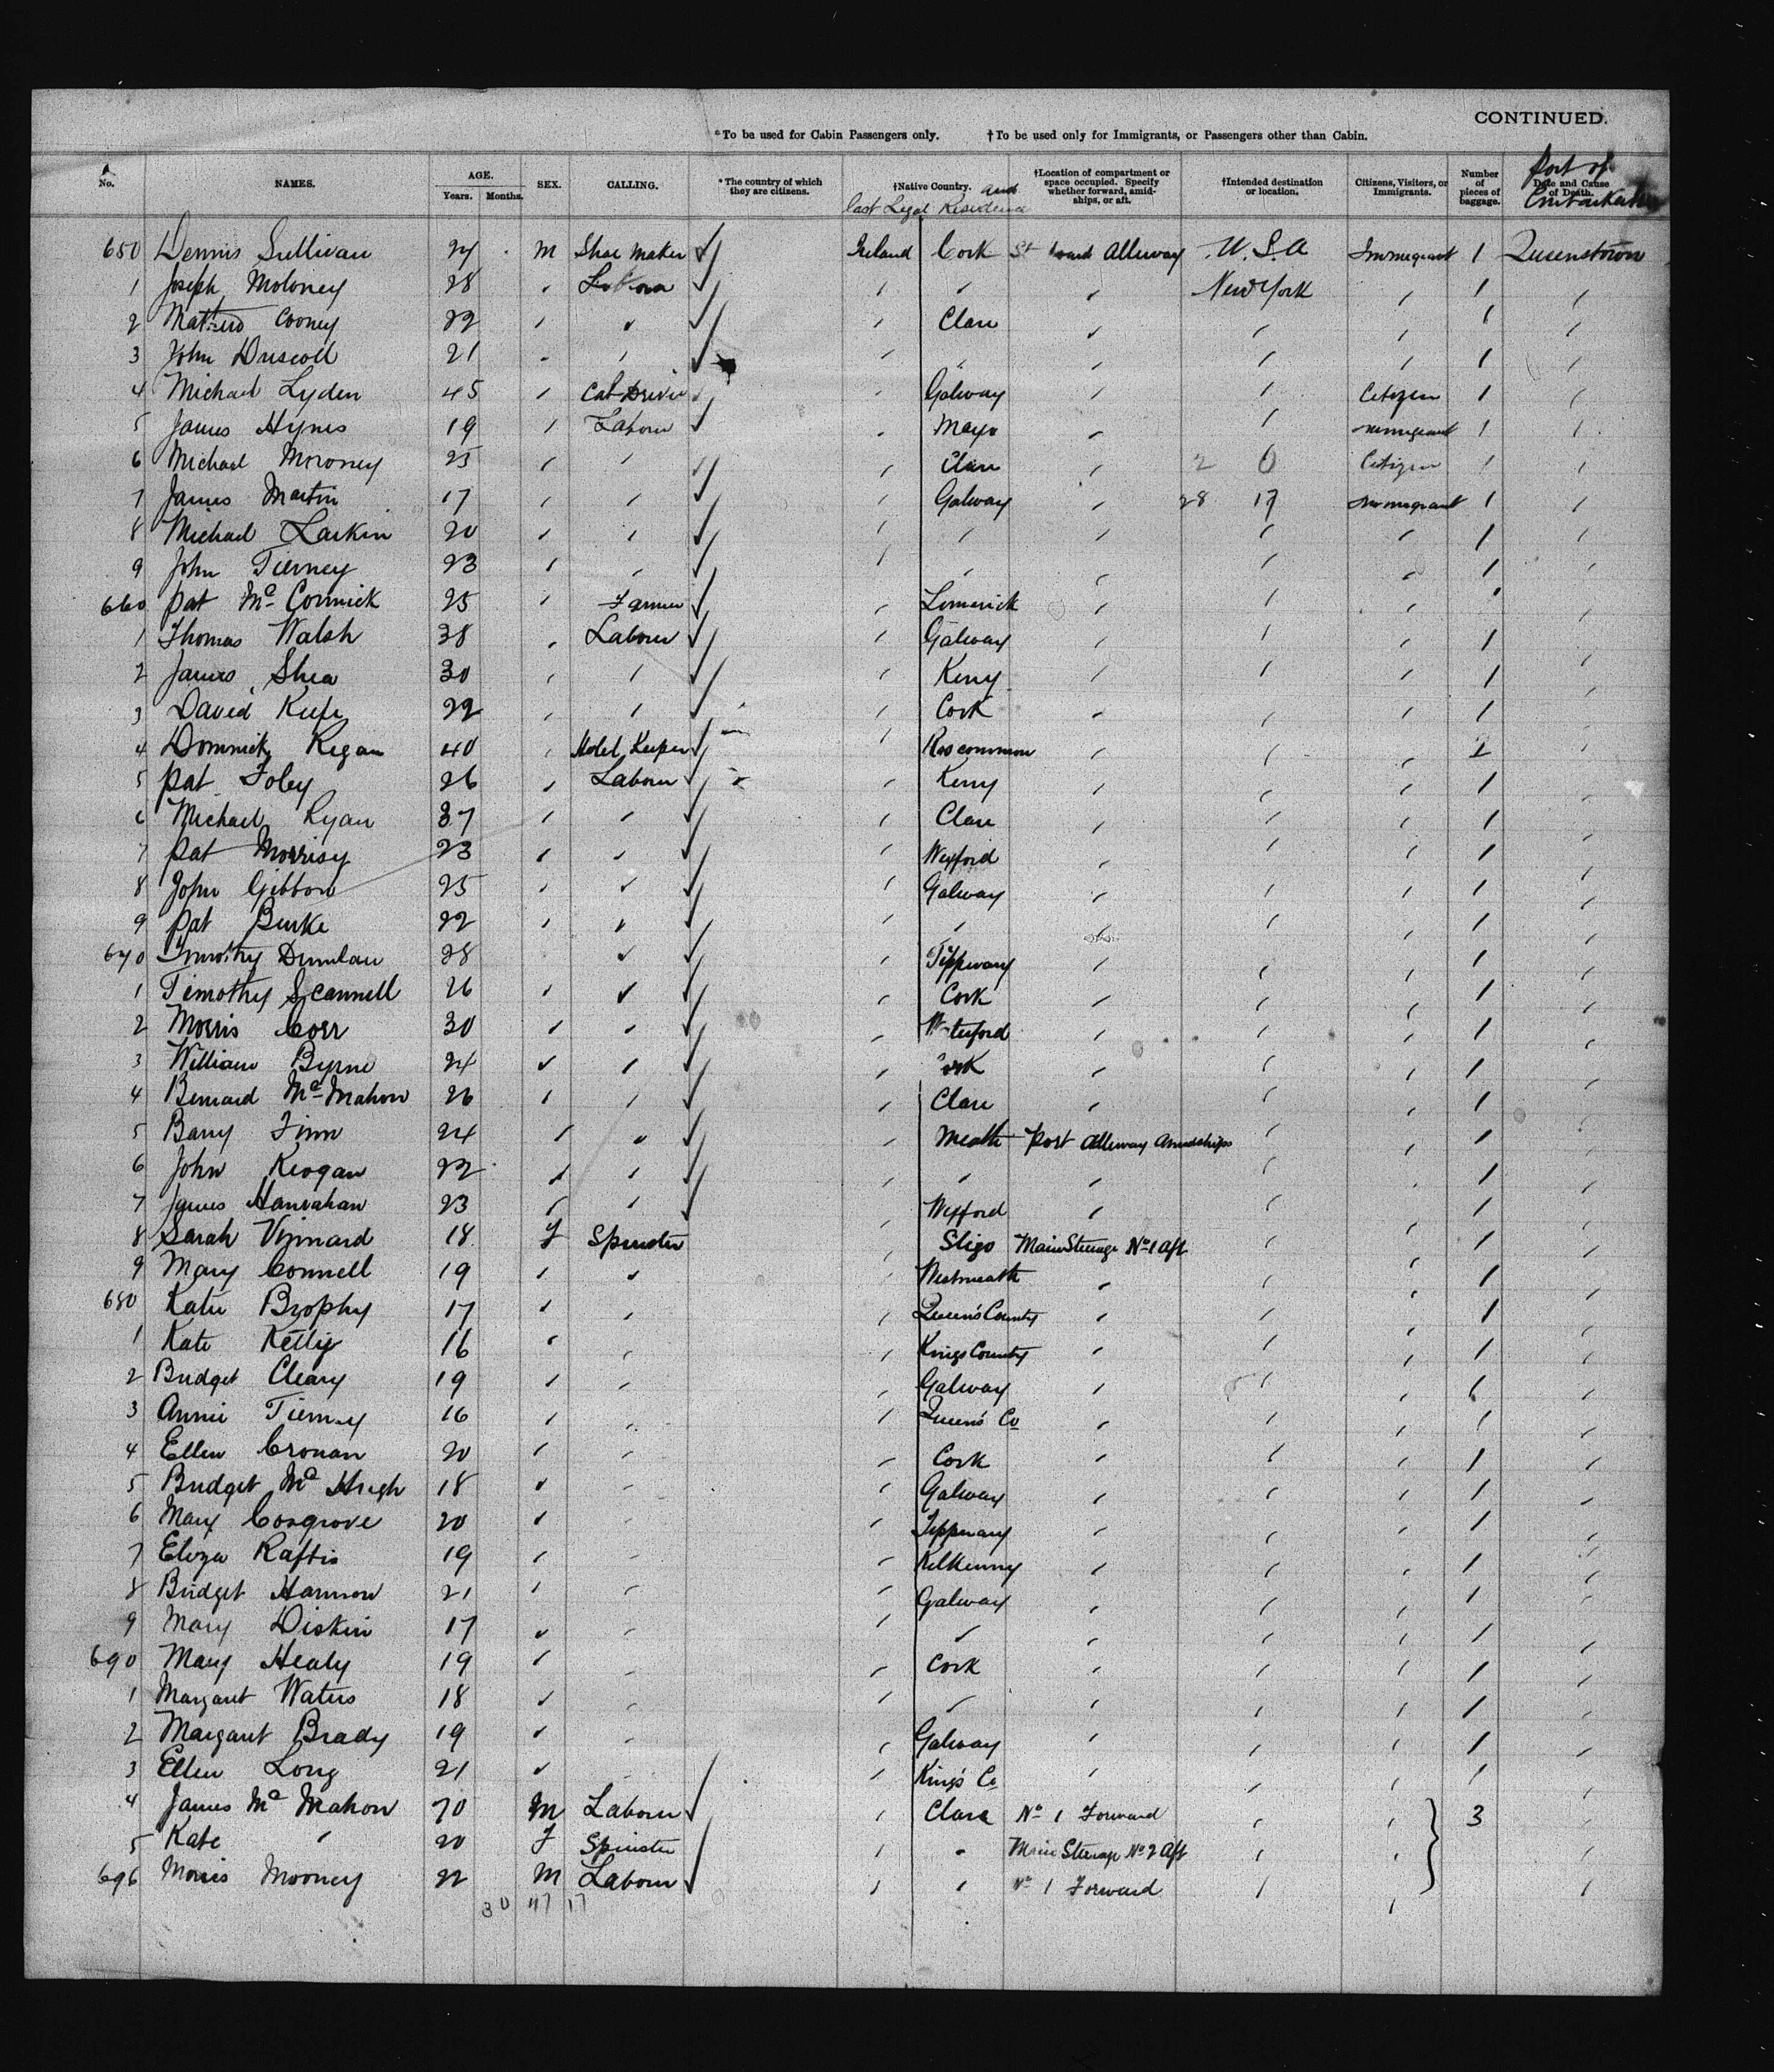 CONTINUED.
*To be used for Cabin Passengers only. †To be used only for Immigrants, or Passengers other than Cabin.
No. NAMES. AGE. Years. Months. SEX. CALLING. *The country of which they are citizens. †Native Country. and last Legal Residence †Location of compartment or space occupied. Specify whether forward, amidships, or aft. †Intended destination or location. Citizens, Visitors, or Immigrants. Number of pieces of baggage. Date and Cause of Death. Port of
650 Dennis Sullivan 24 M Shoe Maker Ireland Cork Alleway U.S.A Immigrant 1 Queenstown
1 Joseph Moloney 28 Labour New York 1
2 Cooney 22 Clare 1
3 John Driscoll 21 1
4 Michael Lyden 45 Cab Driver Galway Citizen 1
5 James Hynes 19 Labour Mayo Immigrant 1
6 Michael Moroney 25 Clare 2 0 Citizen 1
7 James Martin 17 Galway 28 17 Immigrant 1
8 Michael Larkin 20 1
9 John Tierney 23 1
660 Pat Mc Cormick 25 Farmer Limerick
1 Thomas Walsh 38 Labour Galway 1
2 James Shea 30 Kerry 1
3 David Keefe 22 Cork 1
4 Dominick Regan 40 Hotel Keeper Roscommon 2
5 Pat Foley 26 Labour Kerry 1
6 Michael Ryan 37 Clare 1
7 Pat Morrisy 23 Wexford 1
8 John Gibbon 25 Galway 1
9 Pat Burke 22 1
670 Timothy 28 Tipperary 1
1 Timothy Scannell 26 Cork 1
2 Morris Corr 30 Waterford 1
3 William Byrne 24 Cork 1
4 Bernard Mc Mahon 26 Clare 1
5 Barry Finn 24 Meath Port Alleway Amidships 1
6 John Keogan 22 1
7 James Hanrahan 23 Wexford 1
8 Sarah 18 F Spinster Sligo Main Steerage No 1 Aft 1
9 Mary Connell 19 Westmeath 1
680 Katie Brophy 17 Queen's County 1
1 Kate Kelly 16 Kings County 1
2 Bridget Cleary 19 Galway 1
3 Annie Tierney 16 Queen's Co 1
4 Ellen Cronan 20 Cork 1
5 Bridget Mc Hugh 18 Galway 1
6 Mary Cosgrove 20 Tipperary 1
7 Eliza Raftis 19 Kilkenny 1
8 Bridget Hannon 21 Galway 1
9 Mary Diskin 17 1
690 Mary Healy 19 Cork 1
1 Margaret Waters 18 1
2 Margaret Brady 19 Galway 1
3 Ellen Long 21 King's Co 1
4 James Mc Mahon 70 M Labour Clare No 1 Forward 3
5 Kate 20 F Spinster Main Steerage No 2 Aft
696 Morris Mooney 22 M Labour No 1 Forward
30 47 17